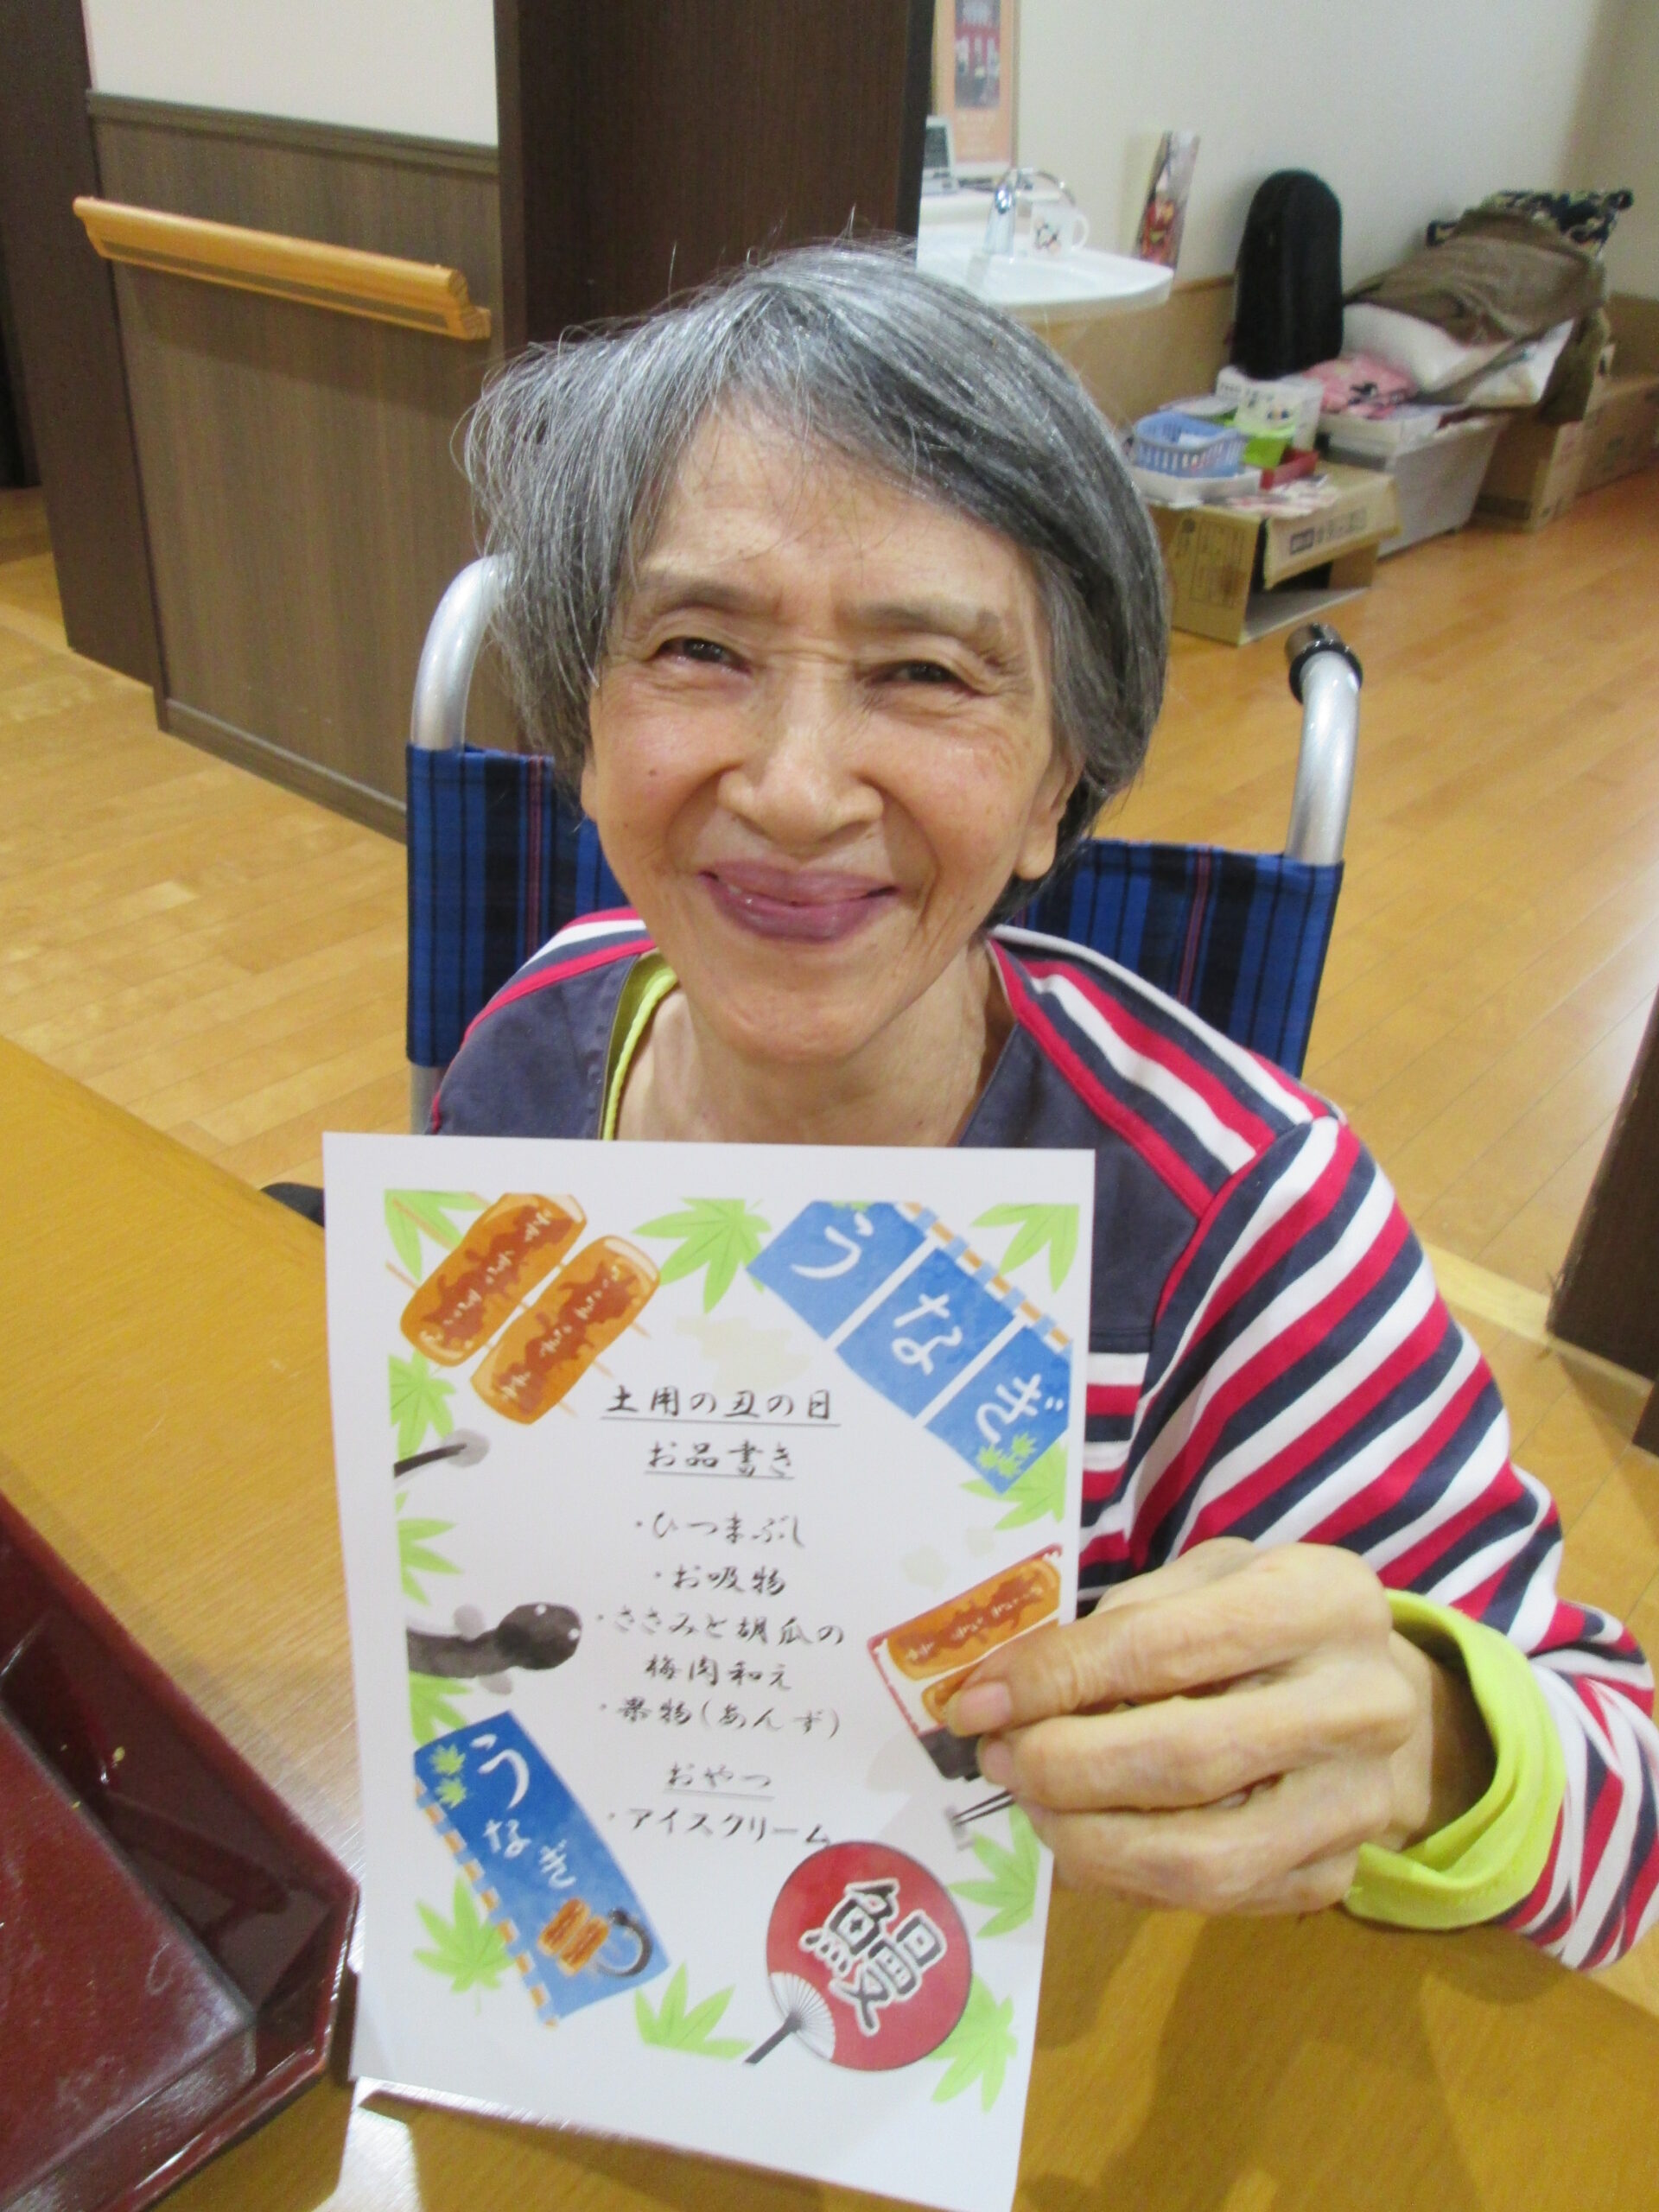 うなぎ
土用の丑の日
お品書き
・ひつまぶし
・お吸物
・ささみと胡瓜の
梅肉和え
・果物(あんず)
おやつ
・アイスクリーム
うなぎ
鰻